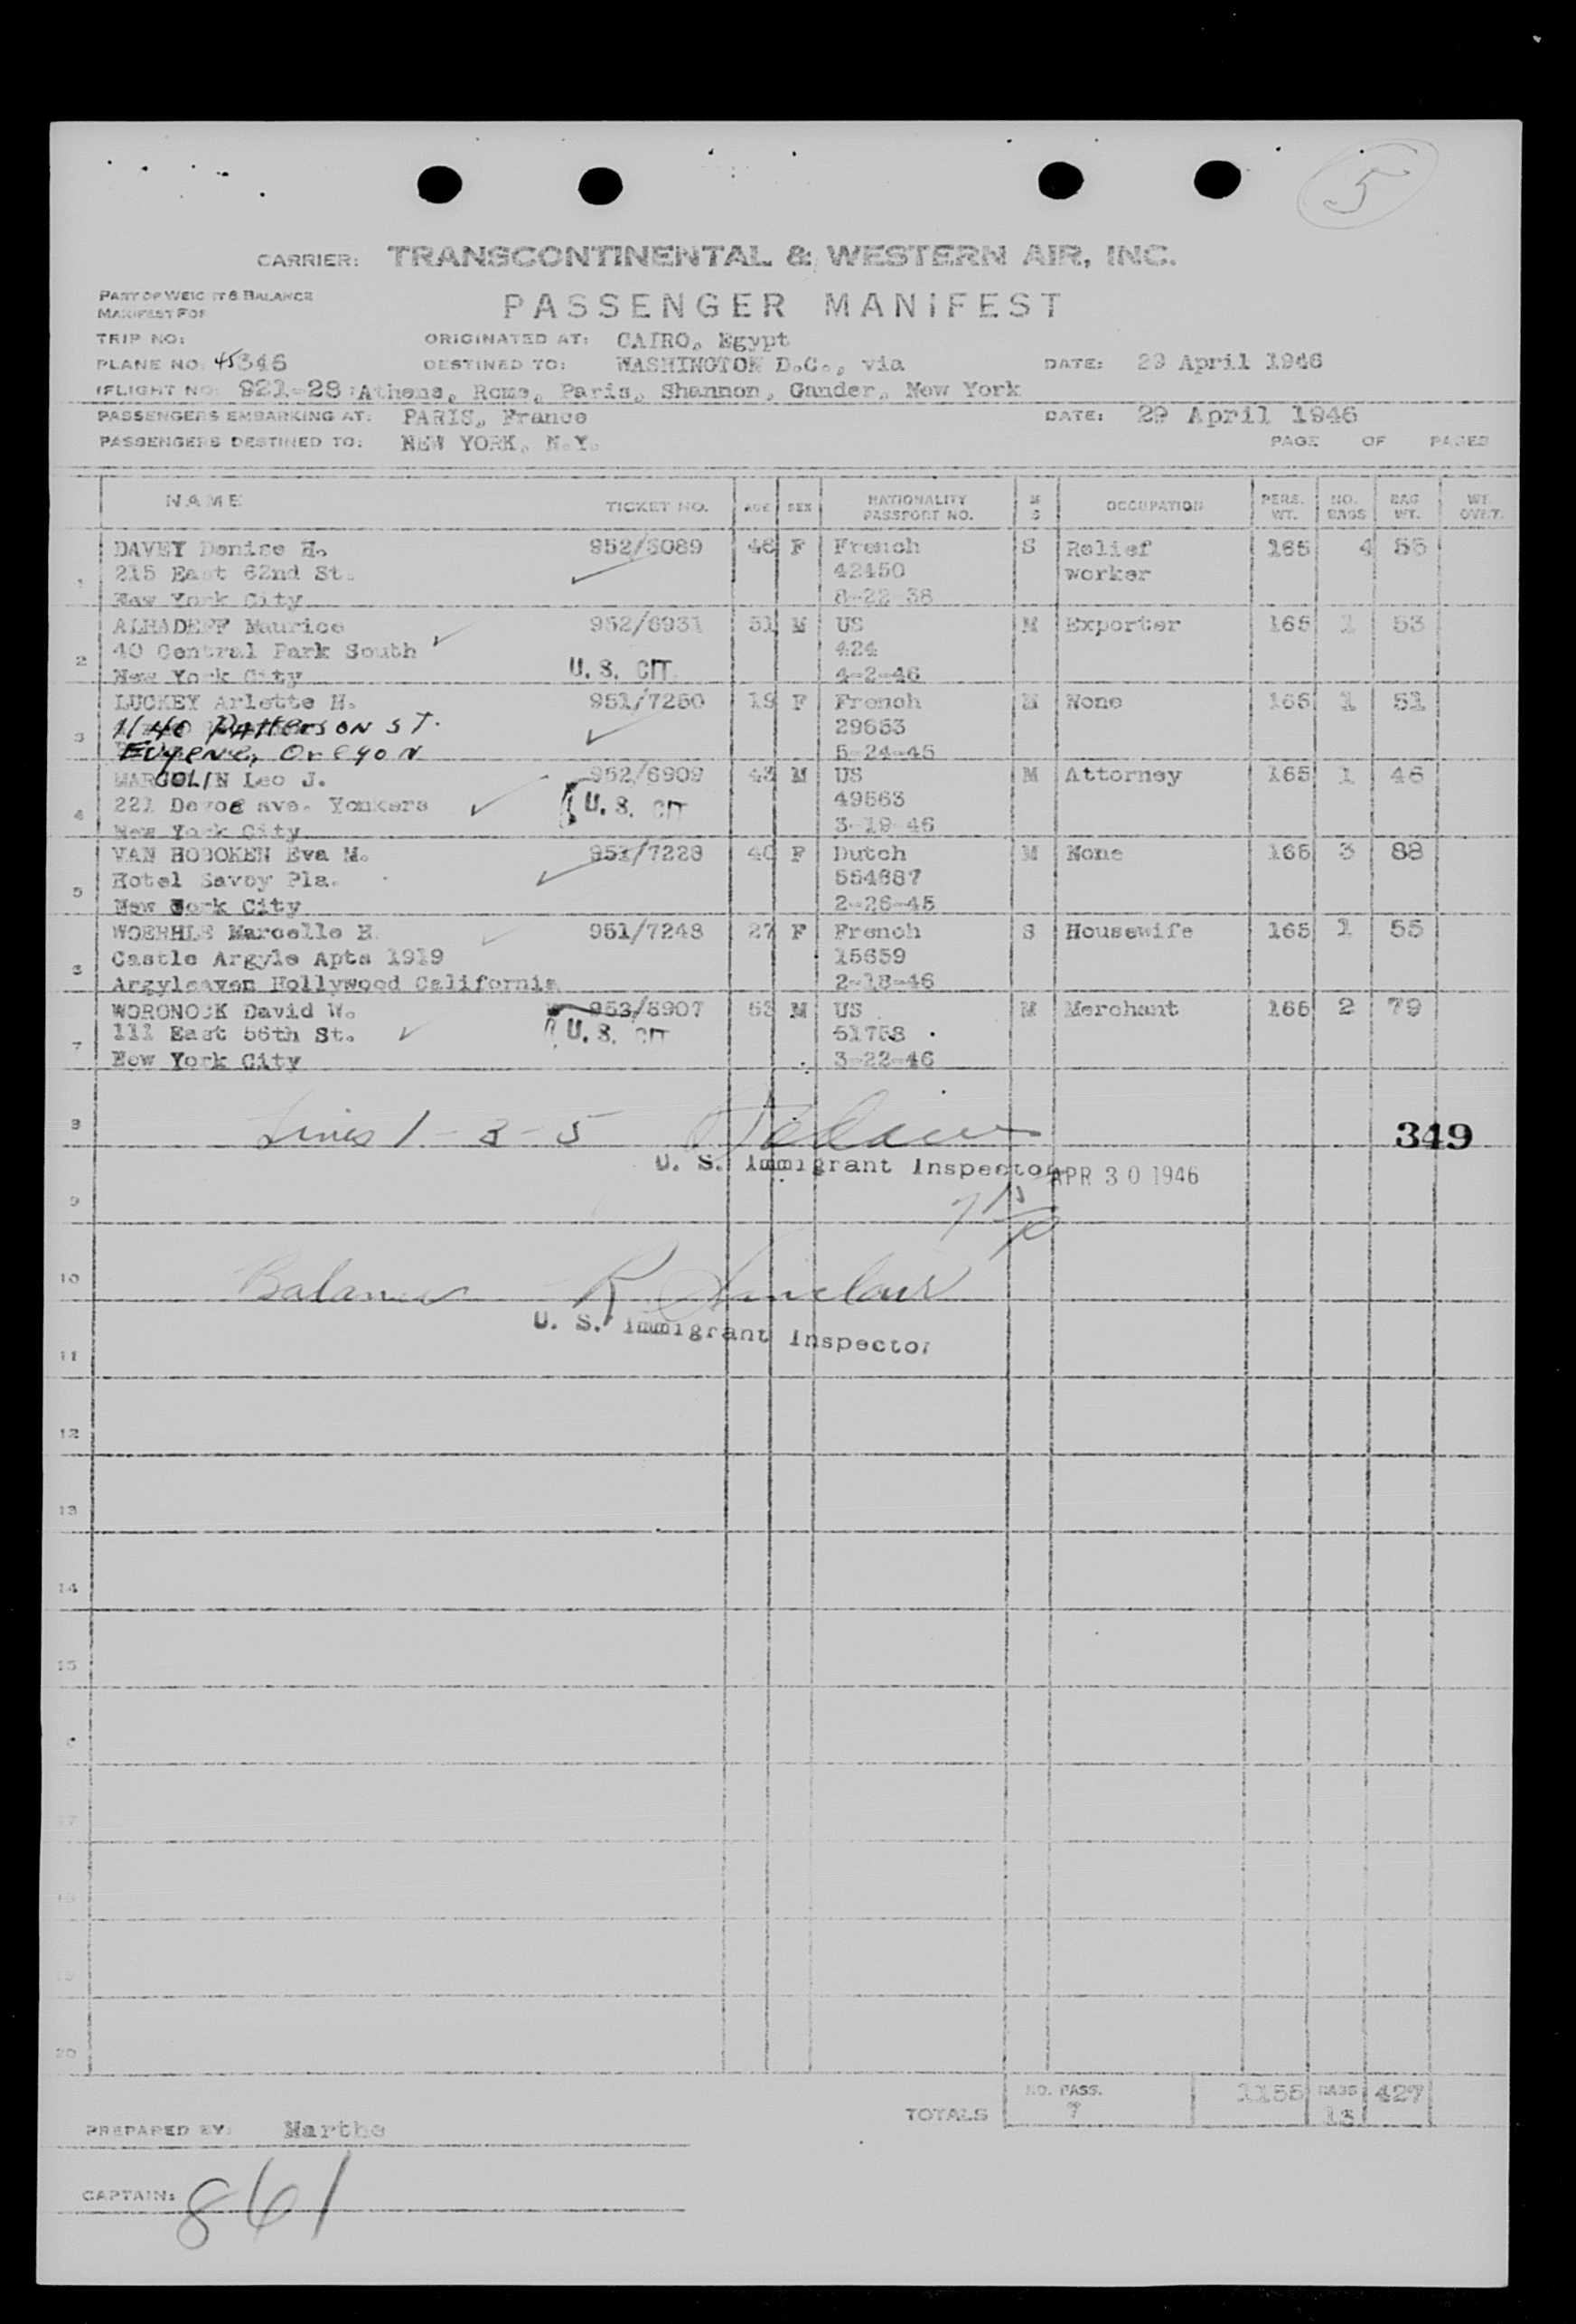 5
CARRIER: TRANSCONTINENTAL & WESTERN AIR, INC.
PART OF WEIGHT & BALANCE
MANIFEST FOR
PASSENGER MANIFEST
TRIP NO: ORIGINATED AT: CAIRO, Egypt
PLANE NO. 45346 DESTINED TO: WASHINGTON D.C., via DATE: 29 April 1946
FLIGHT NO: 921-28 Athens, Rome, Paris, Shannon, Gander, New York
PASSENGERS EMBARKING AT: PARIS, France DATE: 29 April 1946
PASSENGERS DESTINED TO: NEW YORK, N.Y. PAGE OF PAGES
NAME TICKET NO. AGE SEX NATIONALITY PASSPORT NO. M S OCCUPATION PERS. WT. NO. BAGS BAG WT. WT. OVR'T.
DAVEY Denise H. 952/6089 46 F French S Relief 165 4 55
1 215 East 62nd St. 42450 worker
New York City 8-22-38
ALHADEFF Maurice 952/6931 51 M US M Exporter 165 1 53
2 40 Central Park South 424
New York City U. S. CIT 4-2-46
LUCKEY Arlette H. 951/7250 19 F French M None 165 1 51
3 1140 PAtteRSON ST. 29653
Eugene, Oregon 5-24-45
MARGOLIN Leo J. 952/6909 43 M US M Attorney 165 1 46
4 221 Devoe ave. Yonkers U. S. CIT 49563
New York City 3-19-46
VAN HOBOKEN Eva M. 951/7228 40 F Dutch M None 165 3 88
5 Hotel Savoy Pla. 554687
New York City 2-26-45
WOEHHLE Marcelle H. 951/7248 27 F French S Housewife 165 1 55
6 Castle Argyle Apts 1919 15659
Argyleaven Hollywood California 2-18-46
WORONOCK David W. 952/6907 53 M US M Merchant 165 2 79
7 111 East 56th St. U. S. CIT 51758
New York City 3-22-46
8 Lines 1-3-5 349
U. S. Immigrant Inspector APR 30 1946
9
10 Balance R Sinclair
U. S. Immigrant Inspector
11
12
13
14
15
17
18
19
20
NO. PASS. 1155 BAGS 427
TOTALS 7 13
PREPARED BY: Marthe
CAPTAIN: 861